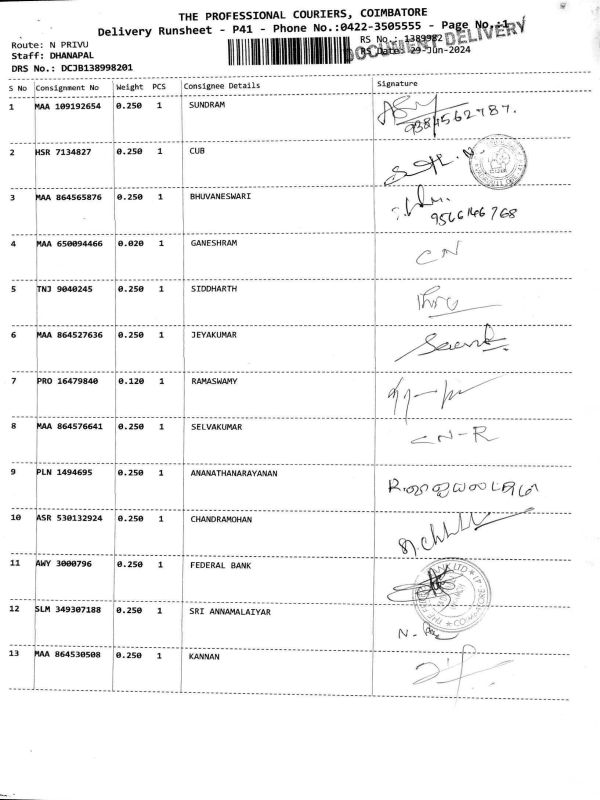 THE PROFESSIONAL COURIERS, COIMBATORE
Delivery Runsheet - P41 - Phone No.:0422-3505555 - Page No.:1
Route: N PRIVU
RS No.: 1389982
DOCUMENT DELIVERY
Staff: DHANAPAL
RS Date: 29-Jun-2024
DRS No.: DCJB138998201
S No Consignment No Weight PCS Consignee Details Signature
1 MAA 109192654 0.250 1 SUNDRAM
9384562787.
2 HSR 7134827 0.250 1 CUB
3 MAA 864565876 0.250 1 BHUVANESWARI
9566146768
4 MAA 650094466 0.020 1 GANESHRAM CN
5 TNJ 9040245 0.250 1 SIDDHARTH
6 MAA 864527636 0.250 1 JEYAKUMAR
7 PRO 16479840 0.120 1 RAMASWAMY
8 MAA 864576641 0.250 1 SELVAKUMAR CN-R
9 PLN 1494695 0.250 1 ANANATHANARAYANAN
10 ASR 530132924 0.250 1 CHANDRAMOHAN
11 AWY 3000796 0.250 1 FEDERAL BANK
12 SLM 349307188 0.250 1 SRI ANNAMALAIYAR
13 MAA 864530508 0.250 1 KANNAN